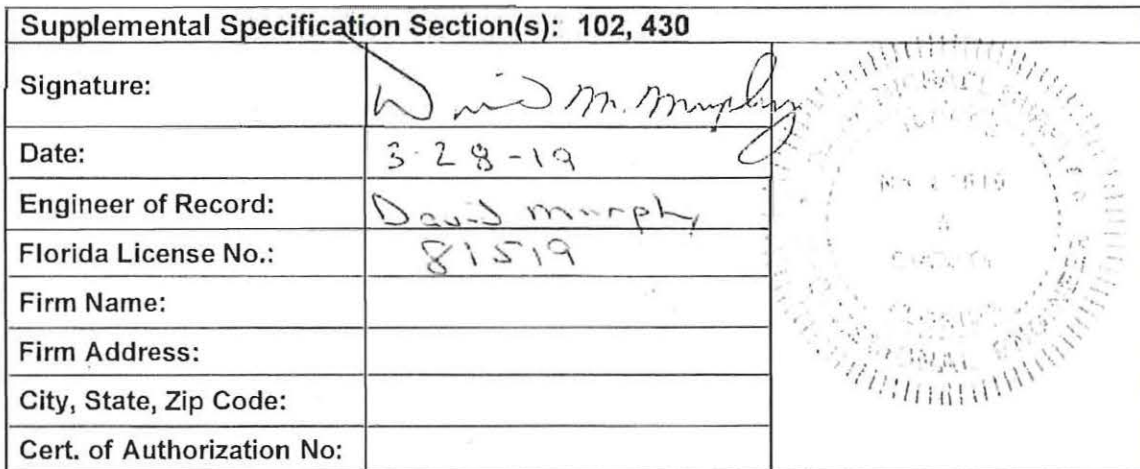 Supplemental Specification Section(s): 102, 430
Signature: David M. Murphy
Date: 3-28-19
Engineer of Record: David Murphy
Florida License No.: 81519
Firm Name:
Firm Address:
City, State, Zip Code:
Cert. of Authorization No:
MICHAEL
ENGINEER